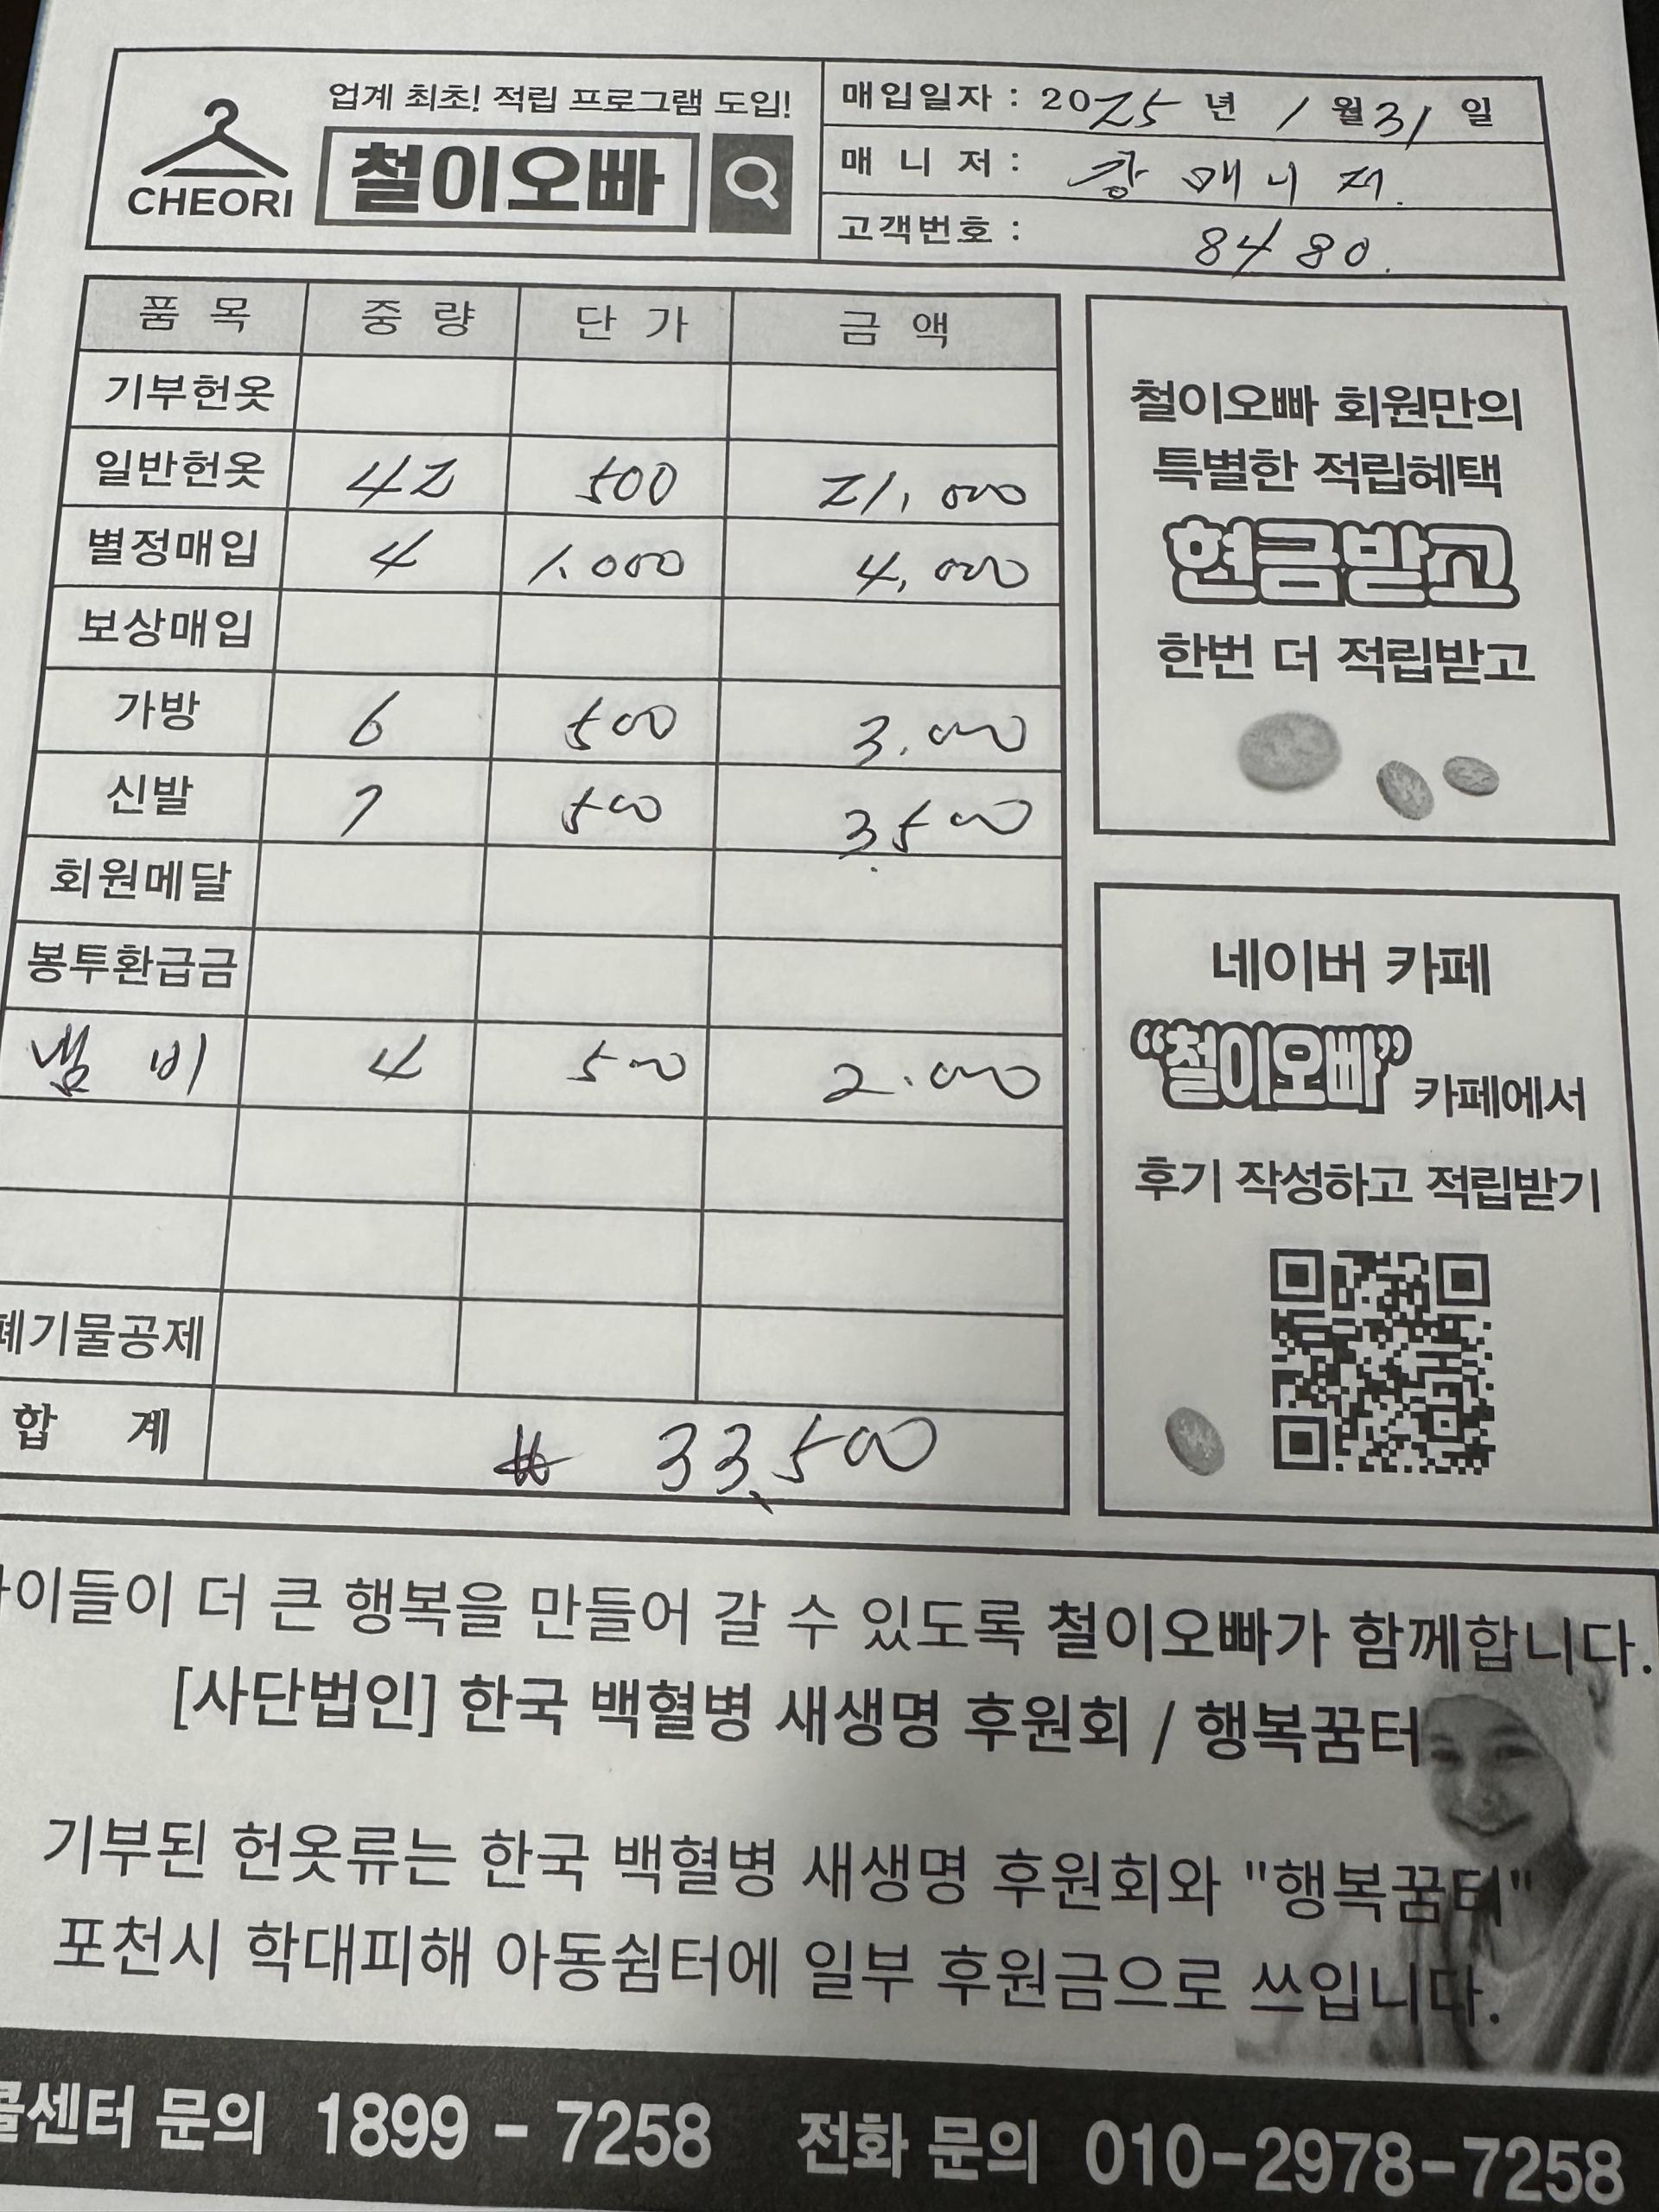 업계 최초! 적립 프로그램 도입!
CHEORI
철이오빠
매입일자 : 2025 년 1 월 31 일
매 니 저 : 매니저.
고객번호 : 8480.
품 목 중 량 단 가 금 액
기부헌옷
일반헌옷 42 500 21,000
별정매입 4 1.000 4,000
보상매입
가방 6 500 3.000
신발 7 500 3.500
회원메달
봉투환급금
냄비 4 500 2.000
폐기물공제
합 계 ₩ 33,500
철이오빠 회원만의
특별한 적립혜택
현금받고
한번 더 적립받고
네이버 카페
“철이오빠” 카페에서
후기 작성하고 적립받기
아이들이 더 큰 행복을 만들어 갈 수 있도록 철이오빠가 함께합니다.
[사단법인] 한국 백혈병 새생명 후원회 / 행복꿈터
기부된 헌옷류는 한국 백혈병 새생명 후원회와 "행복꿈터"
포천시 학대피해 아동쉼터에 일부 후원금으로 쓰입니다.
콜센터 문의 1899 - 7258 전화 문의 010-2978-7258